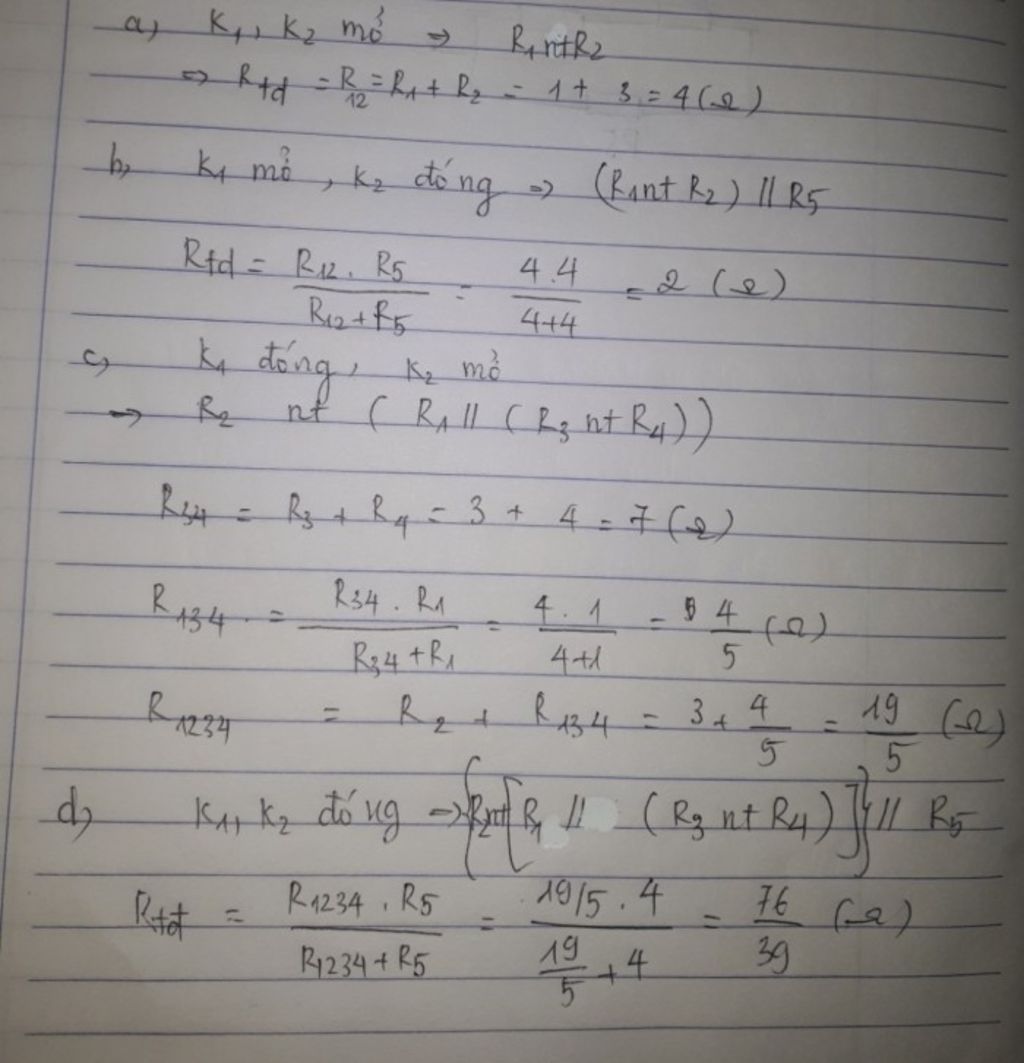 a, K₁, K₂ mở ⇒ R₁ntR₂
⇒ Rtđ = R₁₂ = R₁ + R₂ = 1 + 3 = 4(Ω)
b, K₁ mở, K₂ đóng ⇒ (R₁nt R₂) // R₅
Rtđ = R₁₂ . R₅ / (R₁₂ + R₅) = 4.4 / (4+4) = 2 (Ω)
c, K₁ đóng, K₂ mở
⇒ R₂ nt (R₁ // (R₃ nt R₄))
R₃₄ = R₃ + R₄ = 3 + 4 = 7 (Ω)
R₁₃₄ = R₃₄ . R₁ / (R₃₄ + R₁) = 4 . 1 / (4+1) = 4/5 (Ω)
R₁₂₃₄ = R₂ + R₁₃₄ = 3 + 4/5 = 19/5 (Ω)
d, K₁, K₂ đóng ⇒ {R₂nt[R₁ // (R₃ nt R₄)]} // R₅
Rtđ = R₁₂₃₄ . R₅ / (R₁₂₃₄ + R₅) = 19/5 . 4 / (19/5 + 4) = 76/39 (Ω)